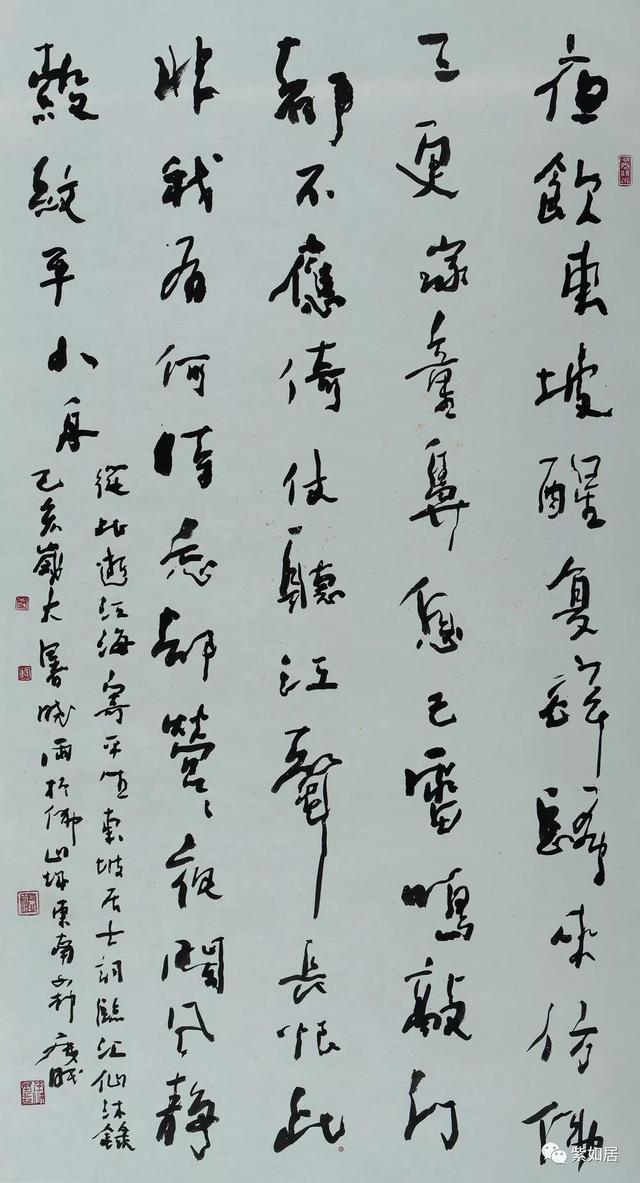 夜飲東坡醒復醉歸來仿佛
三更家童鼻息已雷鳴敲門
都不應倚仗聽江聲長恨此
非我有何時忘却營〻夜闌風靜
縠紋平小舟
從此逝江海寄平生東坡居士詞臨江仙沐錄
己亥歲大暑於佛山東南
紫如居